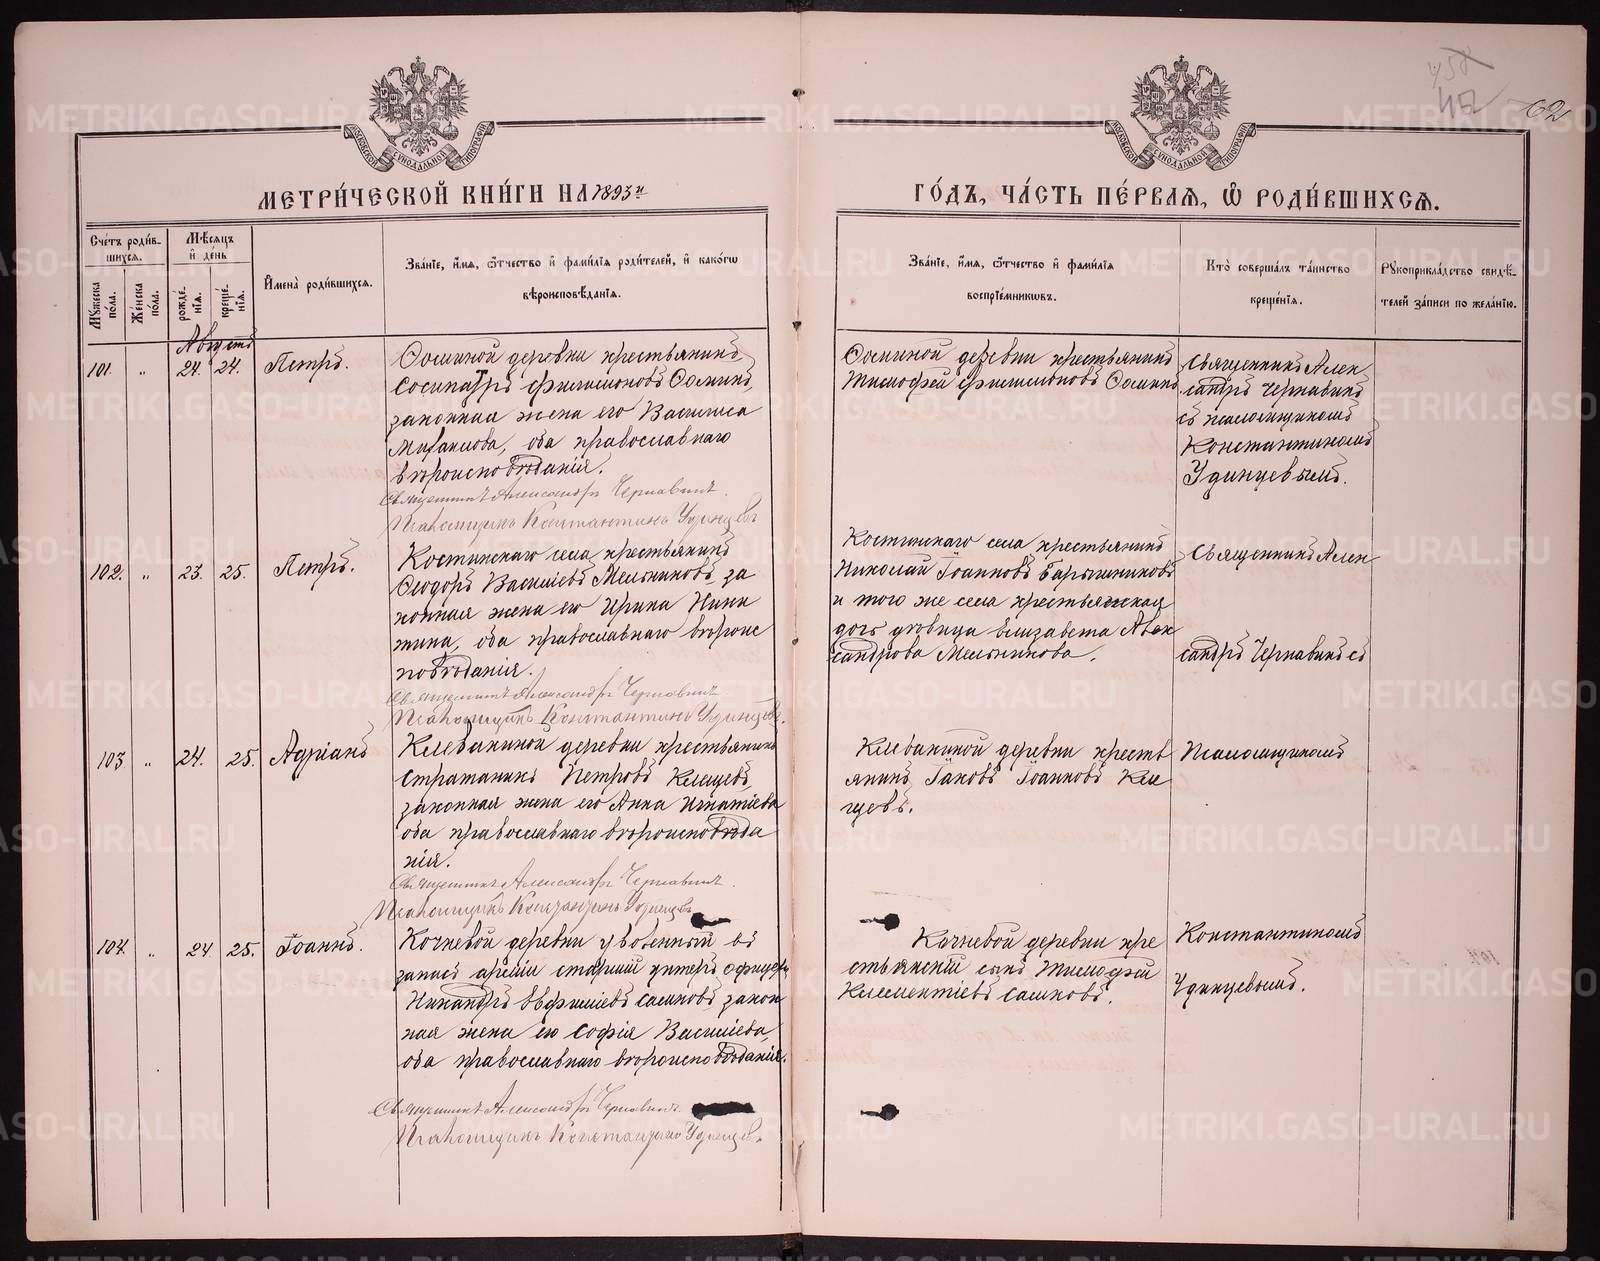 458
452
62
МОСКОВСКОЙ СѴНОДАЛЬНОЙ ТИПОГРАФІИ
МОСКОВСКОЙ СѴНОДАЛЬНОЙ ТИПОГРАФІИ
МЕТРИ́ЧЕСКОЙ КНИ́ГИ НА 1893й
ГО́ДЪ, ЧА́СТЬ ПЕ́РВАѦ, Ѡ҆ РОДИ́ВШИХСѦ.
Сче́тъ роди́в-
шихсѧ.
Мꙋ́жеска по́ла.
Же́нска по́ла.
Мѣ́сѧцъ
и҆ де́нь
рожде́-нїѧ.
креще́-нїѧ.
И҆мена̀ роди́вшихсѧ.
Зва́нїе, и҆́мѧ, ѻ҆́тчество и҆ фами́лїѧ роди́телей, и҆ како́гѡ
вѣроисповѣ́данїѧ.
Зва́нїе, и҆́мѧ, ѻ҆́тчество и҆ фами́лїѧ
воспрїе́мникѡвъ.
Кто̀ соверша́лъ та́инство
креще́нїѧ.
Рꙋкоприкла́дство свидѣ́-
телей за́писи по жела́нїю.
Августъ
101. „ 24. 24. Петръ.
Осминой деревни крестьянинъ
Сосипатръ Филимоновъ Осминъ,
законная жена его Василиса
Михаилова, оба православнаго
вѣроисповѣданія.
Священникъ Александръ Чернавинъ.
Псаломщикъ Константинъ Удинцевъ
Осминой деревни крестьянинъ
Тимофей Филимоновъ Осминъ
Священникъ Алек
сандръ Чернавинъ
съ псаломщикомъ
Константиномъ
Удинцевымъ.
102. „ 23. 25. Петръ.
Костинскаго села крестьянинъ
Ѳеодоръ Василіевъ Мельниковъ, за
конная жена его Ирина Ники
тина, оба православнаго вѣроис
повѣданія.
Священникъ Александръ Чернавинъ
Псаломщикъ Константинъ Удинцевъ.
Костинскаго села крестьянинъ
Николай Іоанновъ Барышниковъ
и того же села крестьянская
дочь дѣвица Елизавета Алек
сандрова Мельникова.
Священникъ Алек
сандръ Чернавинъ съ
103 „ 24. 25. Адріанъ
Клевакиной деревни крестьянинъ
Стратоникъ Петровъ Клещевъ,
законная жена его Анна Игнатіева
оба православнаго вѣроисповѣда
нія.
Священникъ Александръ Чернавинъ.
Псаломщикъ Константинъ Удинцевъ
Клевакиной деревни кресть
янинъ Іаковъ Іоанновъ Кле
щевъ.
Псаломщикомъ
104. „ 24 25. Іоаннъ.
Кочневой деревни уволенный въ
запасъ арміи старшій унтеръ офицеръ
Никандръ Евфиміевъ Самковъ, закон
ная жена его Софія Василіева,
оба православнаго вѣроисповѣданія.
Священникъ Александръ Чернавинъ.
Псаломщикъ Константинъ Удинцевъ.
Кочневой деревни кре
стьянскій сынъ Тимофей
Климентіевъ Самковъ.
Константиномъ
Удинцевымъ.
METRIKI.GASO-URAL.RU